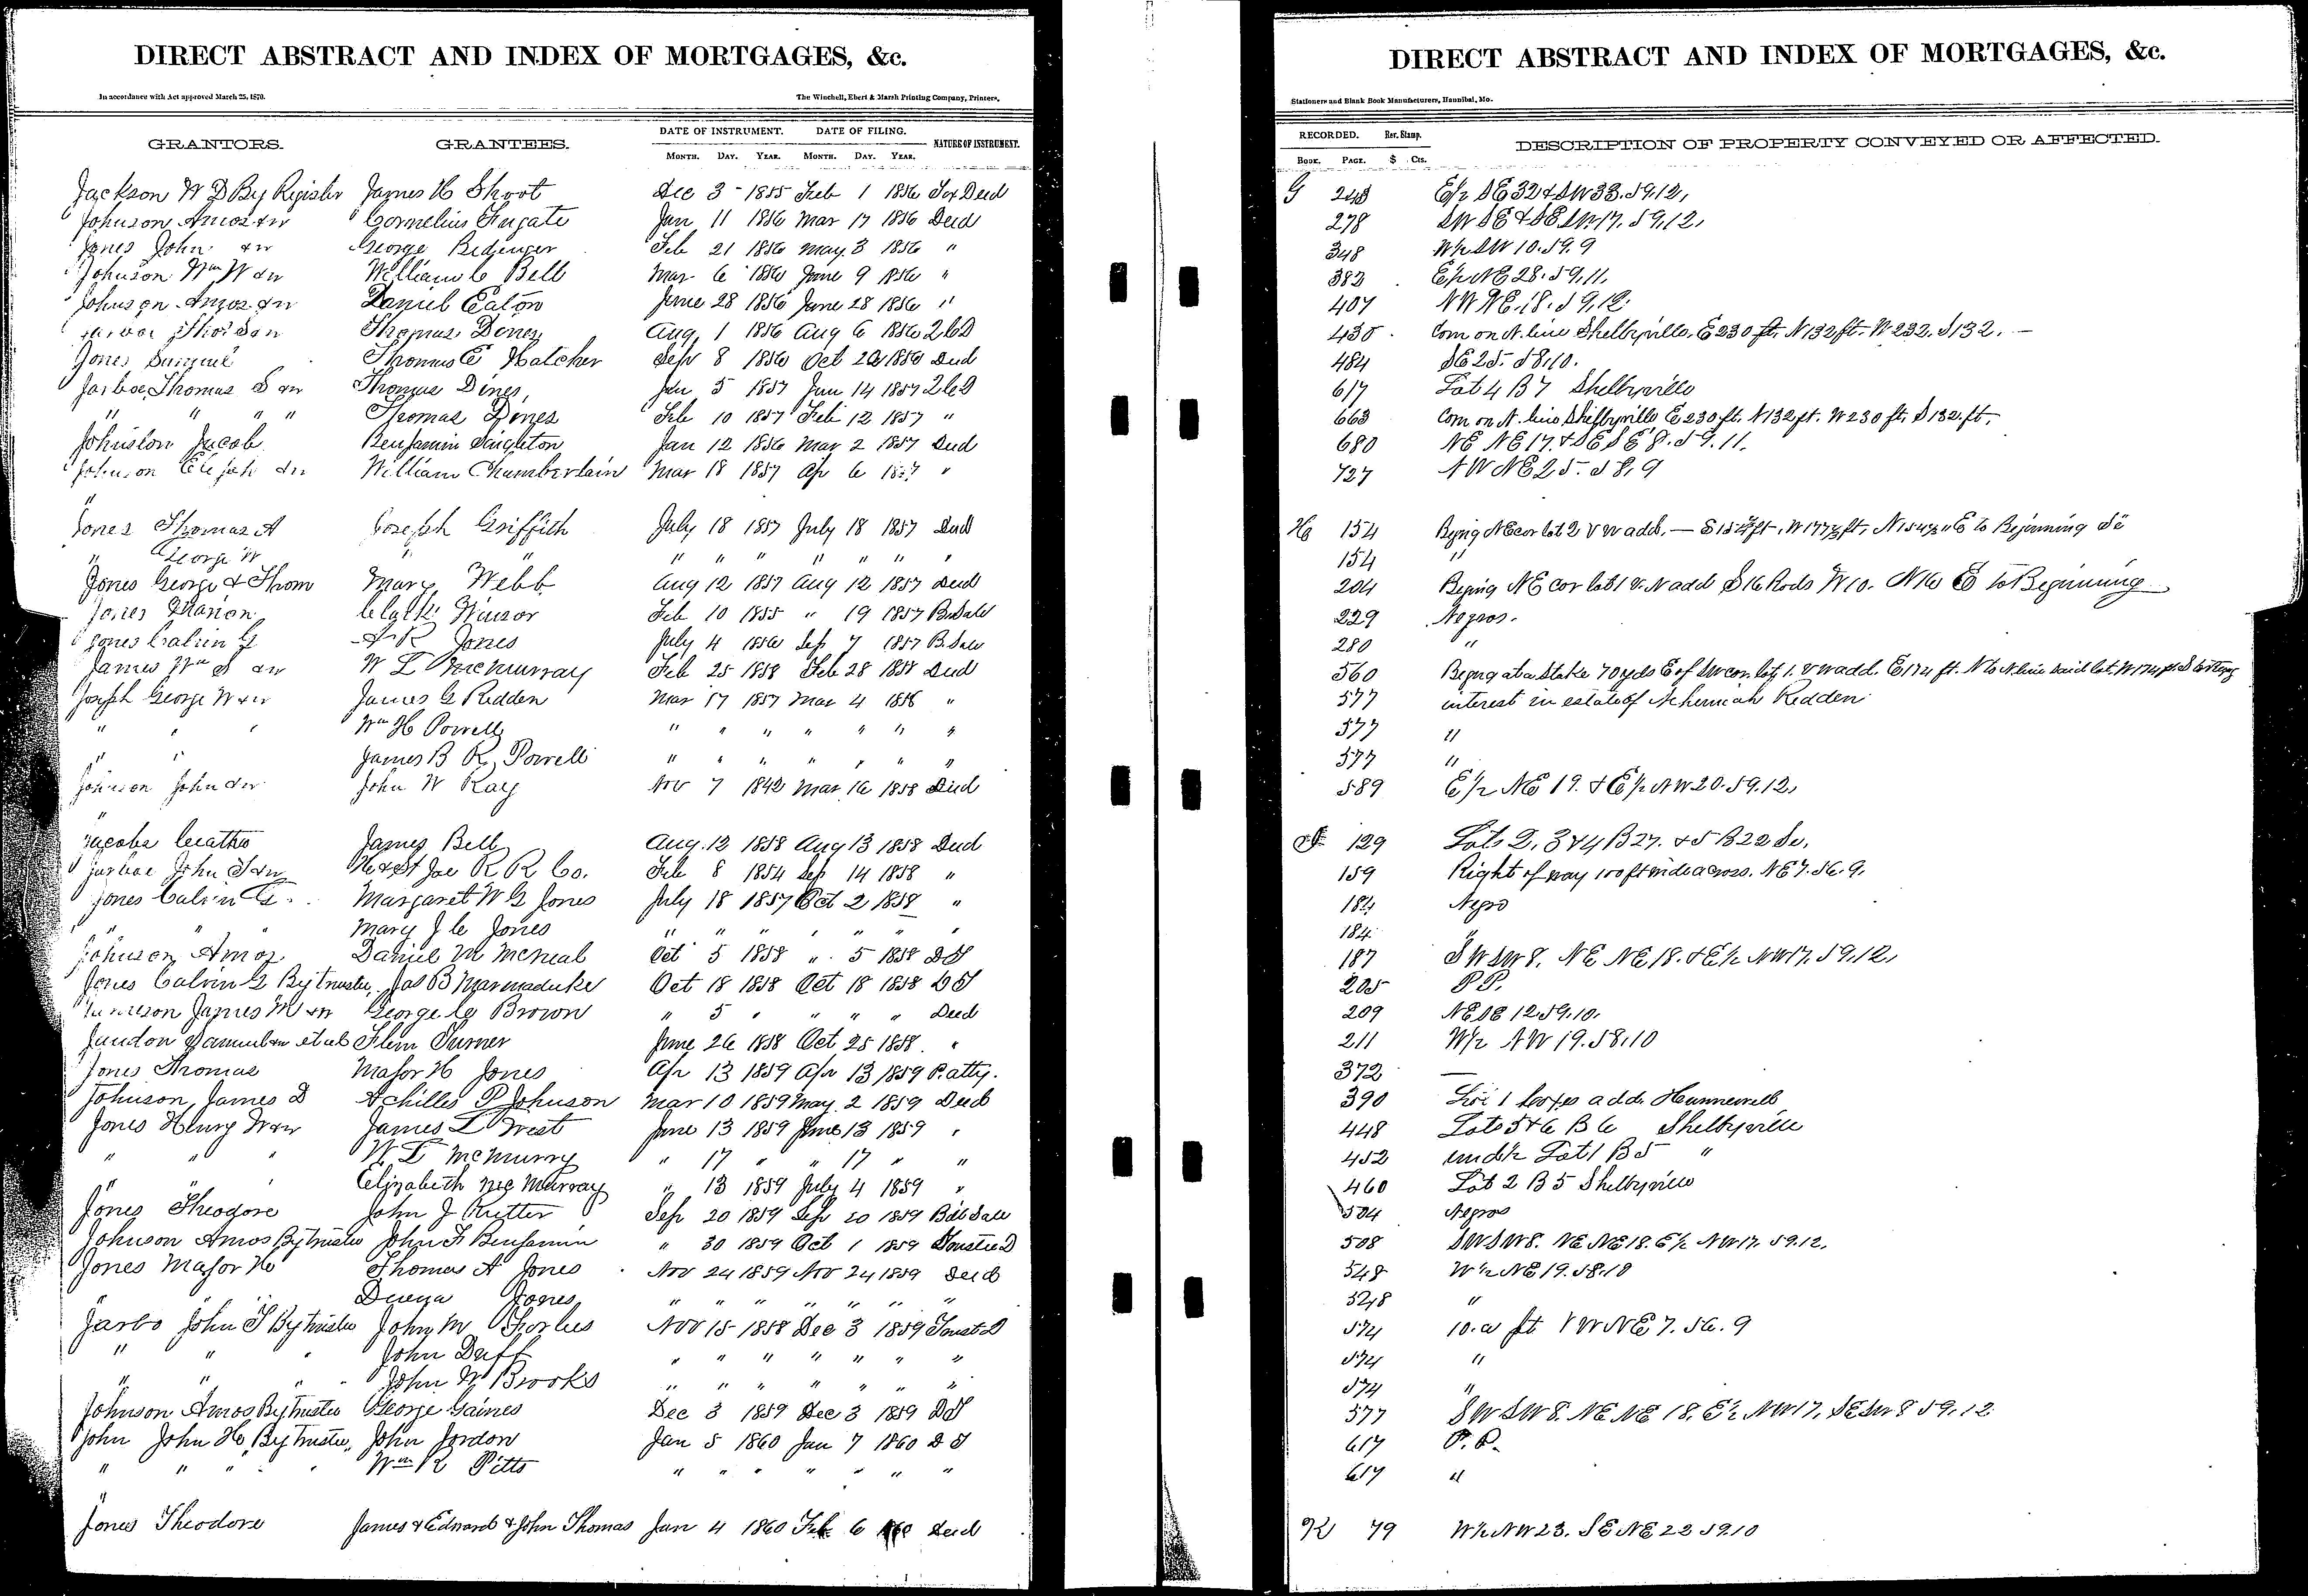 DIRECT ABSTRACT AND INDEX OF MORTGAGES, &c.
In accordance with Act approved March 25, 1870. The Winchell, Ebert & Marsh Printing Company, Printers,
GRANTORS. GRANTEES. DATE OF INSTRUMENT. DATE OF FILING. NATURE OF INSTRUMENT.
MONTH. DAY. YEAR. MONTH. DAY. YEAR.
Jackson W D By Register James H Shoot Dec 3 - 1855 Feb 1 1856 Tax Deed
Johnson Amos & w Cornelius Fugate Jan 11 1856 Mar 17 1856 Deed
Jones John & w George Bedinger Feb 21 1856 May 3 1856 "
Johnson Wm W & w William C Bell Mar 6 1856 June 9 1856 "
Johnson Amos & w Daniel Eaton June 28 1856 June 28 1856 "
Thomas Dines Aug. 1 1856 Aug 6 1856
Jones Samuel Thomas E Hatcher Sep 8 1856 Oct 20 1856 Deed
Jarboe, Thomas S & w Thomas Dines, Jan 5 1857 Jan 14 1857
" " " " Thomas Dines Feb 10 1857 Feb 12 1857 "
Johnston Jacob Benjamin Singleton Jan 12 1856 Mar 2 1857 Deed
Johnson Elijah & w William Chamberlain Mar 18 1857 Ap 6 1857 "
Jones Thomas A Joseph Griffith July 18 1857 July 18 1857 Deed
" George W " " " " " " " "
Jones George & Thom Mary Webb Aug 12 1857 Aug 12 1857 Deed
Jones Marion Clark Winsor Feb 10 1855 " 19 1857 B. Sale
Jones Calvin G A R Jones July 4 1856 Sep 7 1857 B. Sale
James Wm S & w W L McMurray Feb 25 1858 Feb 28 1858 Deed
Joseph George W & w James G Redden Mar 17 1857 Mar 4 1858 "
" " " Wm H Powell " " " " " " "
" " James B R Powell " " " " " " "
Johnson John & w John W Ray Nov 7 1842 Mar 16 1858 Deed
Jacobs James Bell Aug. 12 1858 Aug 13 1858 Deed
Jarboe John S & w H & St Joe R R Co. Feb 8 1854 Sep 14 1858 "
Jones Calvin G. Margaret W G Jones July 18 1857 Oct 2 1858 "
" " Mary J C Jones " " " " " " "
Johnson Amos Daniel M McNeal Oct 5 1858 " 5 1858 D T
Jones Calvin G By trustee. Jas B Marmaduke Oct 18 1858 Oct 18 1858 D T
James M & w George C Brown " 5 " " " " Deed
Judon Samuel & w et al Flem Turner June 26 1858 Oct 25 1858. "
Jones Thomas Major H Jones Apr 13 1859 Apr 13 1859 P. atty.
Johnson, James D Achilles P Johnson Mar 10 1859 May. 2 1859 Deed
Jones Henry W & w James L West June 13 1859 June 13 1859 "
" " " W L McMurry " 17 " " 17 " "
" " " Elizabeth McMurray " 13 1859 July 4 1859 "
Jones Theodore John J Rutter Sep 20 1859 Sep 20 1859 Bill Sale
Johnson Amos By trustee John F Benjamin " 30 1859 Oct 1 1859 Trustee D
Jones Major H Thomas A Jones Nov 24 1859 Nov 24 1859 Deed
" Jones " " " " " " "
Jarbo John S By trustee John M Nov 15 1858 Dec 3 1859 Trust D
" " " John Duff " " " " " " "
" " " John W Brooks " " " " " " "
Johnson Amos By trustee George Gaines Dec 3 1859 Dec 3 1859 D T
John John H, By Trustee, John Jordon Jan 5 1860 Jan 7 1860 D T
" " " " Wm R Pitts " " " " " " "
Jones Theodore James & Edward & John Thomas Jan 4 1860 Feb 6 Deed
DIRECT ABSTRACT AND INDEX OF MORTGAGES, &c.
Stationers and Blank Book Manufacturers, Hannibal, Mo.
RECORDED. Rev. Stamp. DESCRIPTION OF PROPERTY CONVEYED OR AFFECTED.
BOOK. PAGE. $ Cts.
G 248 E½ SE 32 & SW 33. 59. 12,
278 SW SE & SE SW. 17. 59. 12,
348 W½ SW 10. 59. 9
382 E½ NE 28. 59. 11.
407 NW NE. 18. 59. 12.
435 Com on N. line Shelbyville. E 230 ft. N 132 ft. W 232. S 132.
484 SE 25. 58. 10.
617 Lot 4 B 7 Shelbyville
663 Com on N. line Shelbyville E 230 ft. N 132 ft. W 230 ft. S 132. ft.
680 NE NE 17. & SE SE 8. 59. 11.
727 NW NE 25. 58. 9
H 154 Beging NE cor lot 2 V W add. — to Beginning
154 "
204 Beging NE cor lot 1 V. W add S 16 Rods W 10. N 16 E to Beginning
229 Negros.
280 "
560 Beging at a Stake 70 yds E of SW cor. lot 1. V W add. E 174 ft. N to N. line said lot. W 174 ft. S to Beg
577 interest in estate of Nehemiah Redden
577 "
577 "
589 E½ NE 19. & E½ NW 20. 59. 12.
129 Lots 2, 3 & 4 B 27. & 5 B 22
159 Right of way 100 ft wide across. NE 7. 56. 9.
184 Negro
184 "
187 SW SW 8. NE NE 18. & E½ NW 17. 59. 12.
205 P P.
209 NE SE 12. 59. 10.
211 W½ NW 19. 58. 10
372 —
390 add. Hunnewell
448 Lots 5 & 6 B 6 Shelbyville
452 und ½ Lot 1 B 5 "
460 Lot 2 B 5 Shelbyville
504 Negros
508 SW SW 8. NE NE 18. E½ NW 17. 59. 12.
548 W½ NE 19. 58. 10
548 "
574 10. a pt NE 7. 56. 9
574 "
574 "
577 SW SW 8. NE NE 18. E½ NW 17. SE SW 8 59. 12
617 P. P.
617 "
K 79 W½ NW 23. SE NE 22 59. 10